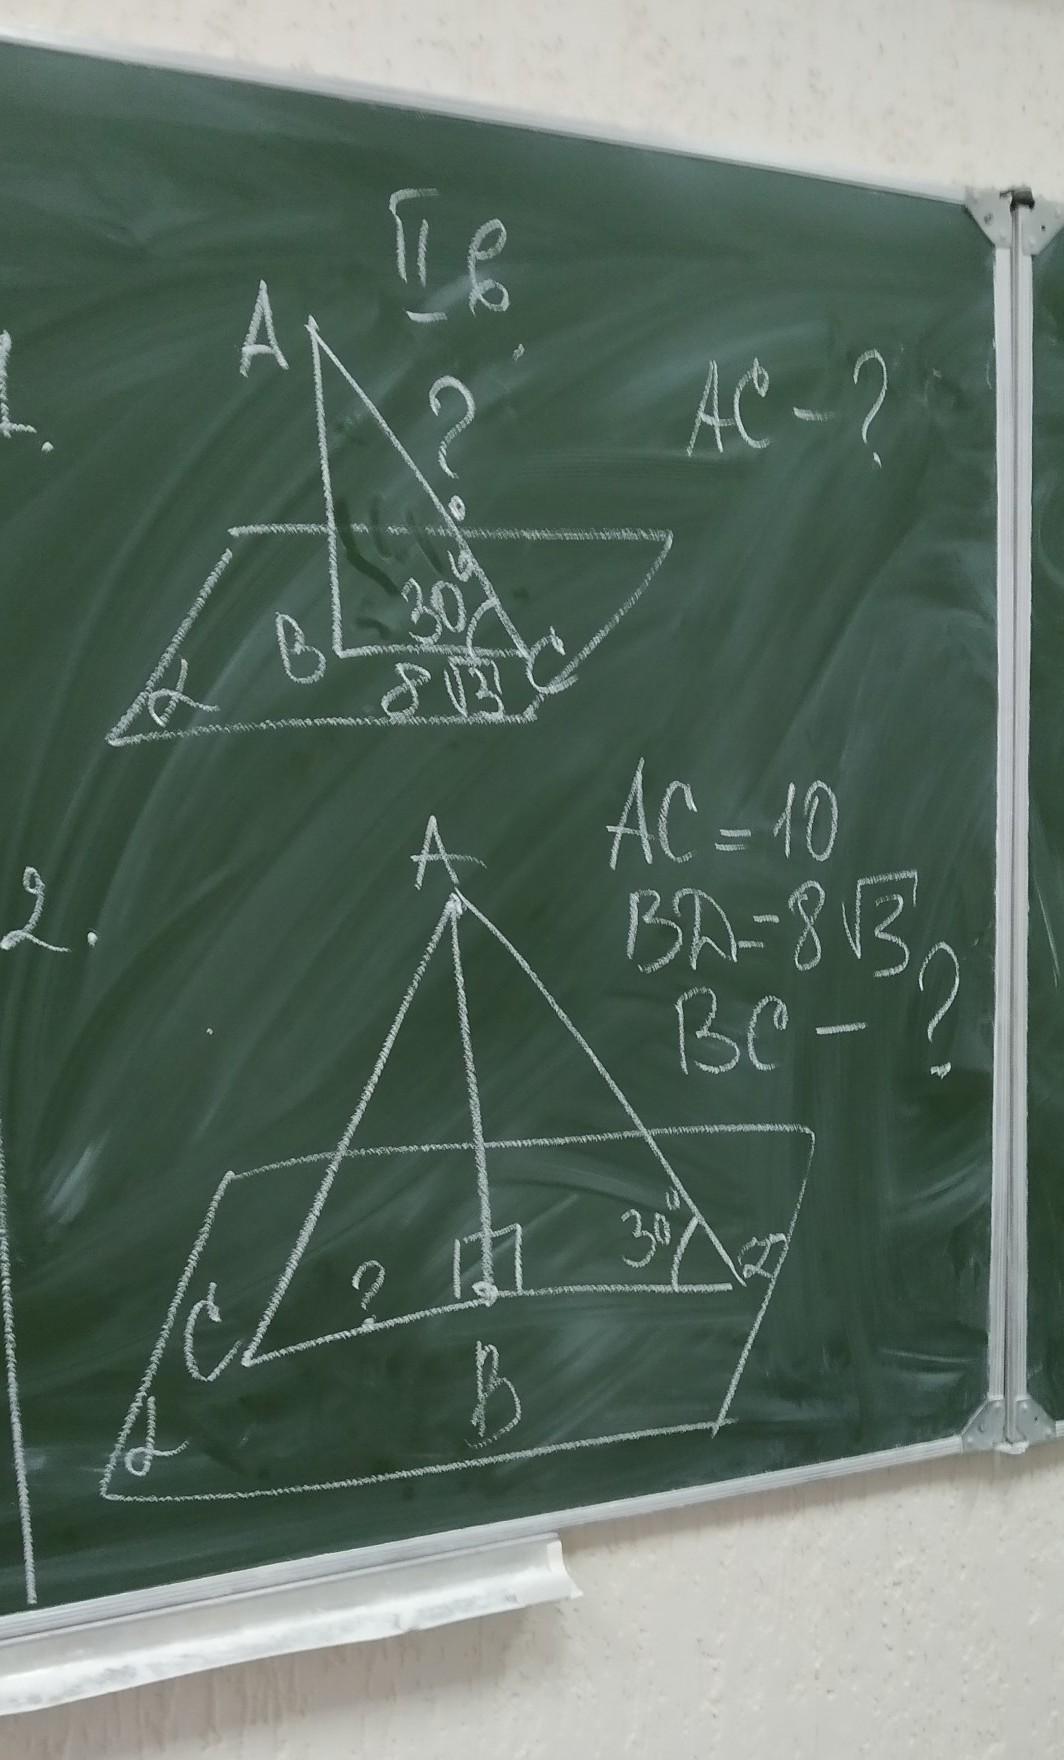 II в
1.
A
?
AC - ?
30°
B
C
8√3
α
2.
A
AC = 10
BD = 8√3
BC - ?
30°
D
?
C
B
α